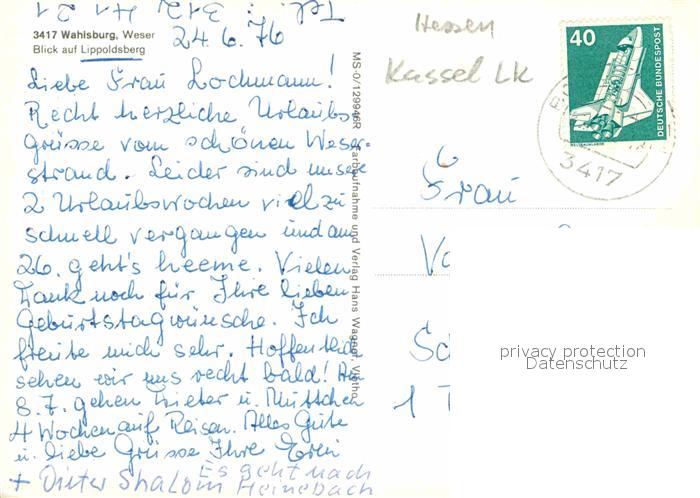 Tel.: 3121 41 21
3417 Wahlsburg, Weser
Blick auf Lippoldsberg
24.6.76
Liebe Frau Lochmann!
Recht herzliche Urlaubs-
grüsse vom schönen Weser-
strand. Leider sind unsere
2 Urlaubswochen viel zu
schnell vergangen und am
26. geht's heeme. Vielen
Dank noch für Ihre lieben
Geburtstagwünsche. Ich
freute mich sehr. Hoffentlich
sehen wir uns recht bald! Am
8.7. gehen Dieter u. Muttchen
4 Wochen auf Reisen. Alles Gute
u. liebe Grüsse Ihre
+ Dieter Shalom
Es geht nach
Heinebach
MS-0/129946R Farbaufnahme und Verlag Hans Wagner, Vlotho
Hessen
Kassel LK
40
DEUTSCHE BUNDESPOST
3417
Frau
Sc
1
privacy protection
Datenschutz